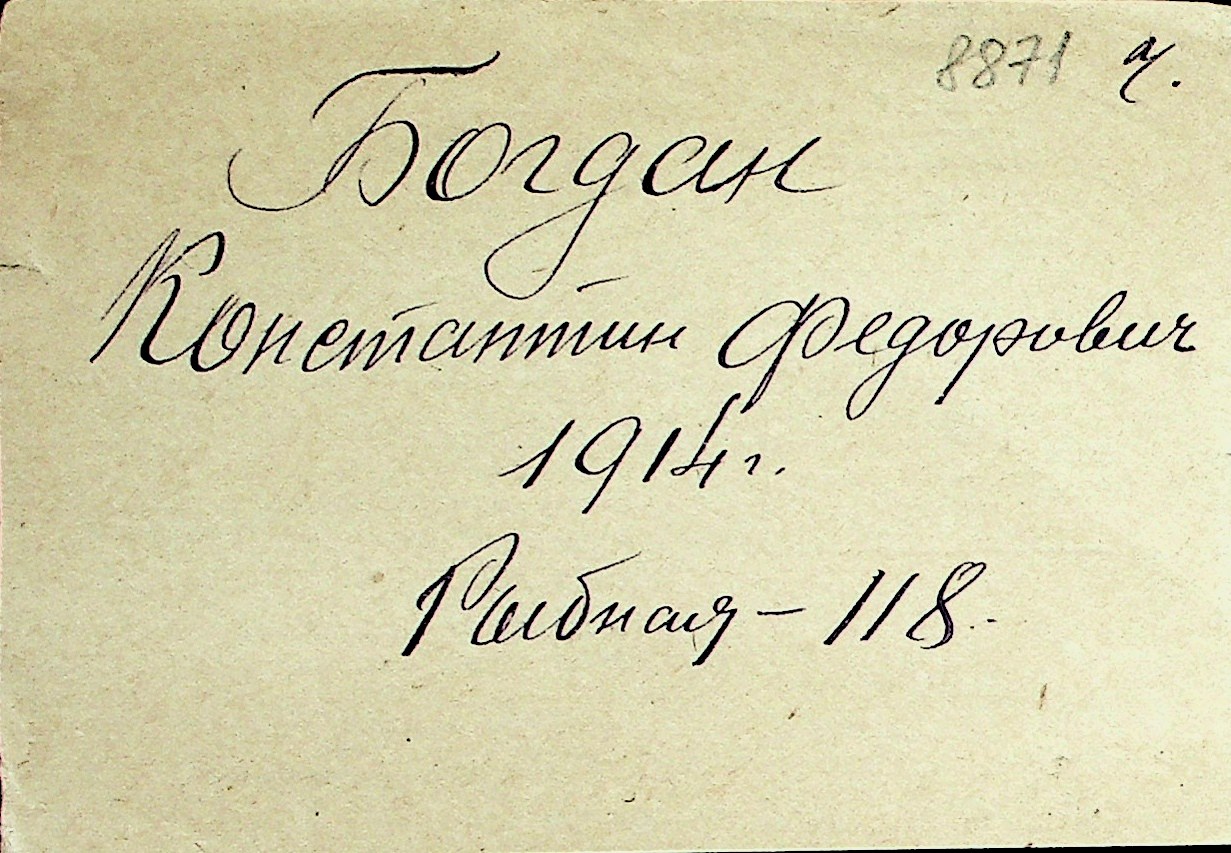 8871 ч.
Богдан
Константин Федорович
1914 г.
Рыбная – 118.